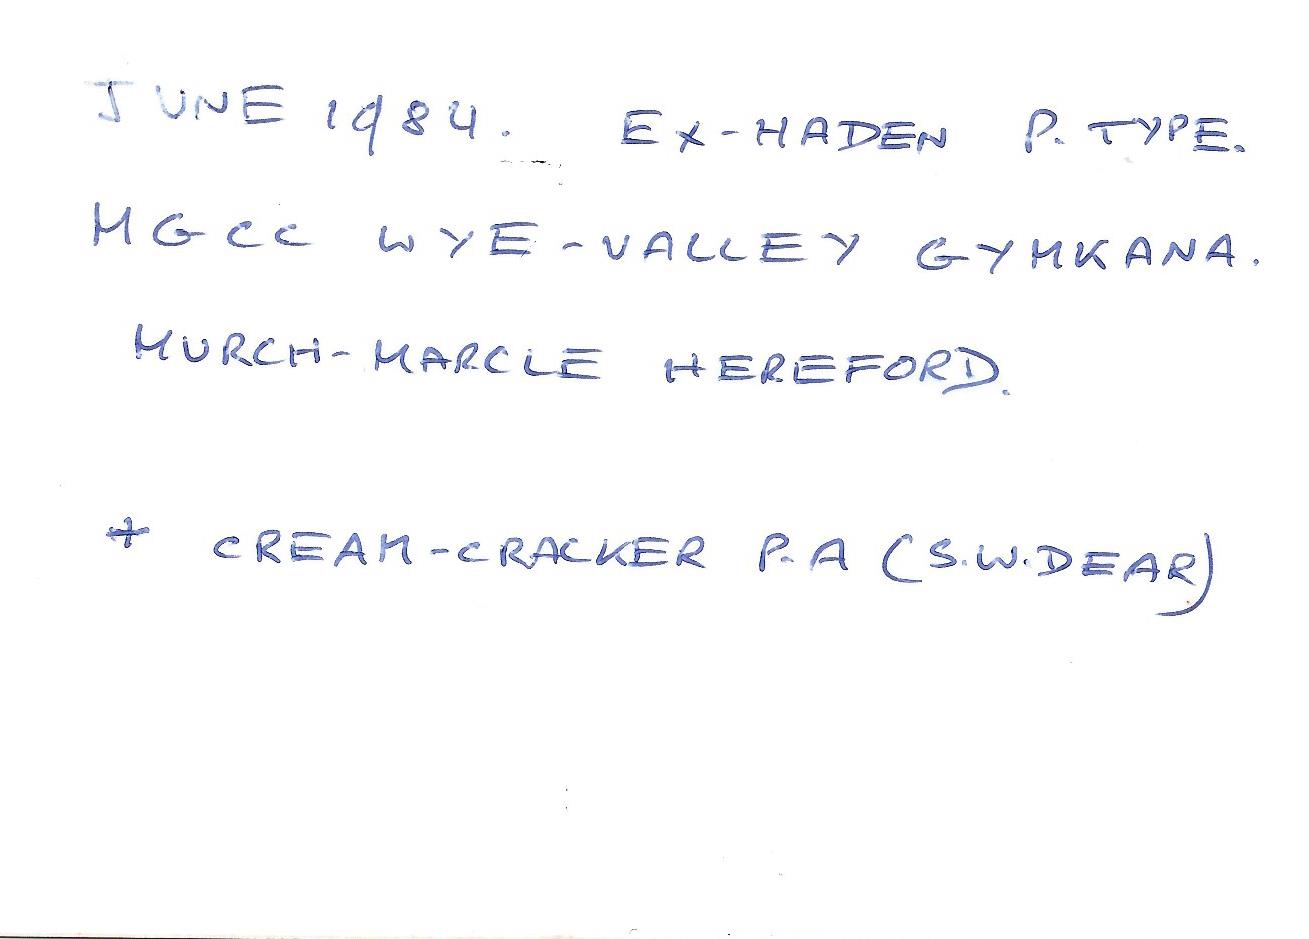 JUNE 1984. EX-HADEN P. TYPE.
MGCC WYE-VALLEY GYMKANA.
MURCH-MARCLE HEREFORD.
+ CREAM-CRACKER P.A (S.W.DEAR)